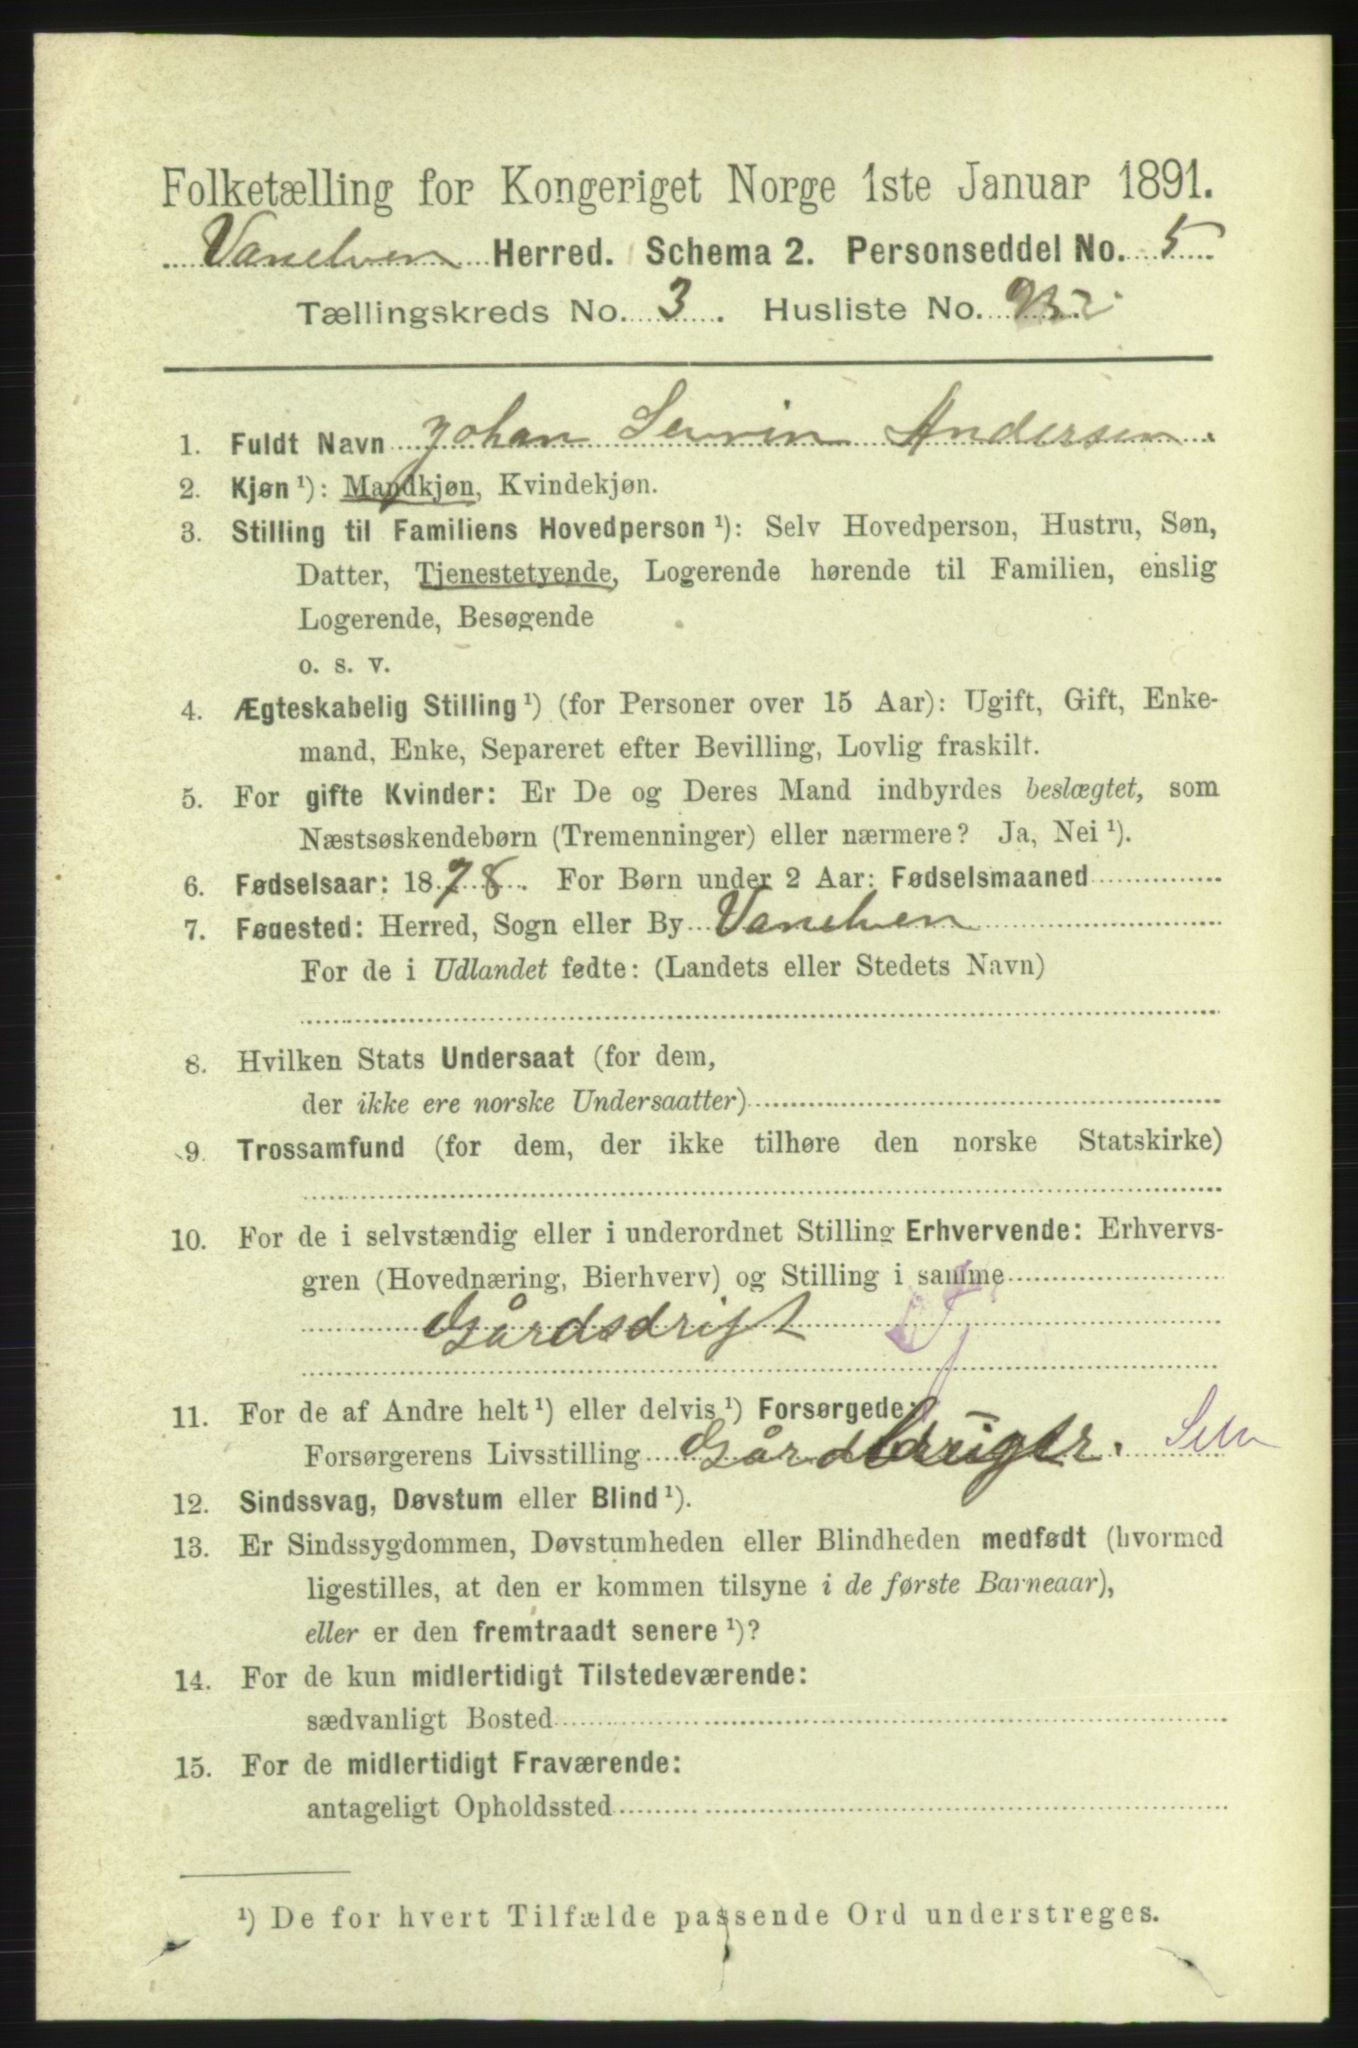 Folketælling for Kongeriget Norge 1ste Januar 1891.
Vanelven Herred. Schema 2. Personseddel No. 5
Tællingskreds No. 3. Husliste No.
1. Fuldt Navn Johan Servin Andersen.
2. Kjøn ¹): Mandkjøn, Kvindekjøn.
3. Stilling til Familiens Hovedperson ¹): Selv Hovedperson, Hustru, Søn,
Datter, Tjenestetyende, Logerende hørende til Familien, enslig
Logerende, Besøgende
o. s. v.
4. Ægteskabelig Stilling ¹) (for Personer over 15 Aar): Ugift, Gift, Enke-
mand, Enke, Separeret efter Bevilling, Lovlig fraskilt.
5. For gifte Kvinder: Er De og Deres Mand indbyrdes beslægtet, som
Næstsøskendebørn (Tremenninger) eller nærmere? Ja, Nei ¹).
6. Fødselsaar: 1878. For Børn under 2 Aar: Fødselsmaaned
7. Fødested: Herred, Sogn eller By Vanelven
For de i Udlandet fødte: (Landets eller Stedets Navn)
8. Hvilken Stats Undersaat (for dem,
der ikke ere norske Undersaatter)
9. Trossamfund (for dem, der ikke tilhøre den norske Statskirke)
10. For de i selvstændig eller i underordnet Stilling Erhvervende: Erhvervs-
gren (Hovednæring, Bierhverv) og Stilling i samme
Gårdsdrift
11. For de af Andre helt ¹) eller delvis ¹) Forsørgede:
Forsørgerens Livsstilling Gårdbruger.
12. Sindssvag, Døvstum eller Blind ¹).
13. Er Sindssygdommen, Døvstumheden eller Blindheden medfødt (hvormed
ligestilles, at den er kommen tilsyne i de første Barneaar),
eller er den fremtraadt senere ¹)?
14. For de kun midlertidigt Tilstedeværende:
sædvanligt Bosted
15. For de midlertidigt Fraværende:
antageligt Opholdssted
¹) De for hvert Tilfælde passende Ord understreges.